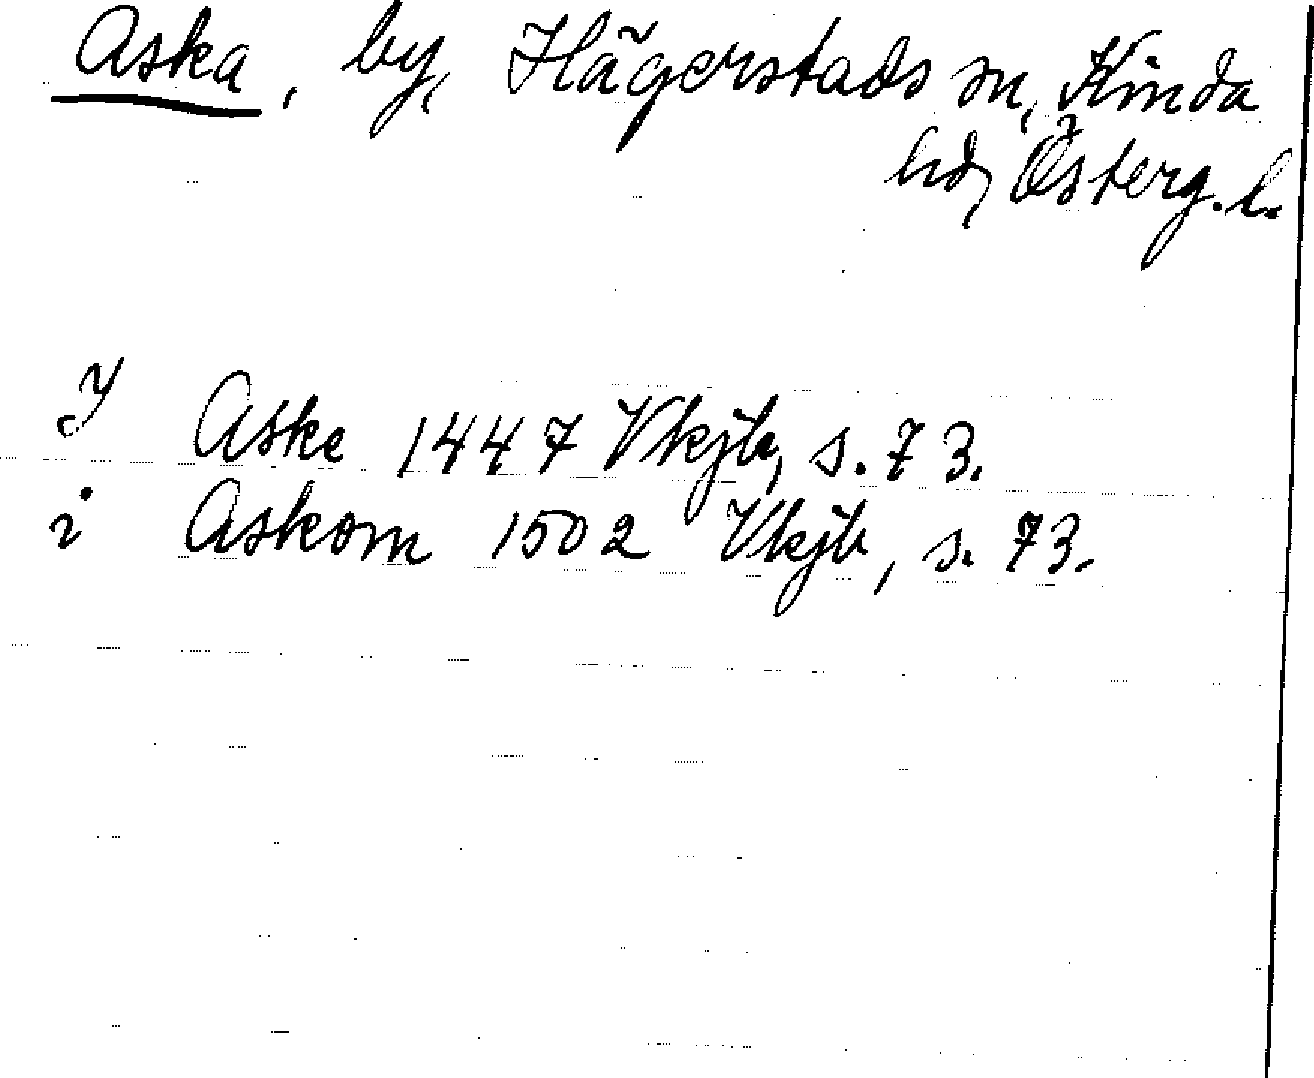 Aska, by, Hägerstads sn, Kinda
hd, Österg. l.
J Aske 1447 Vkjb, s. 73.
i Askom 1502 Vkjb, s. 73.